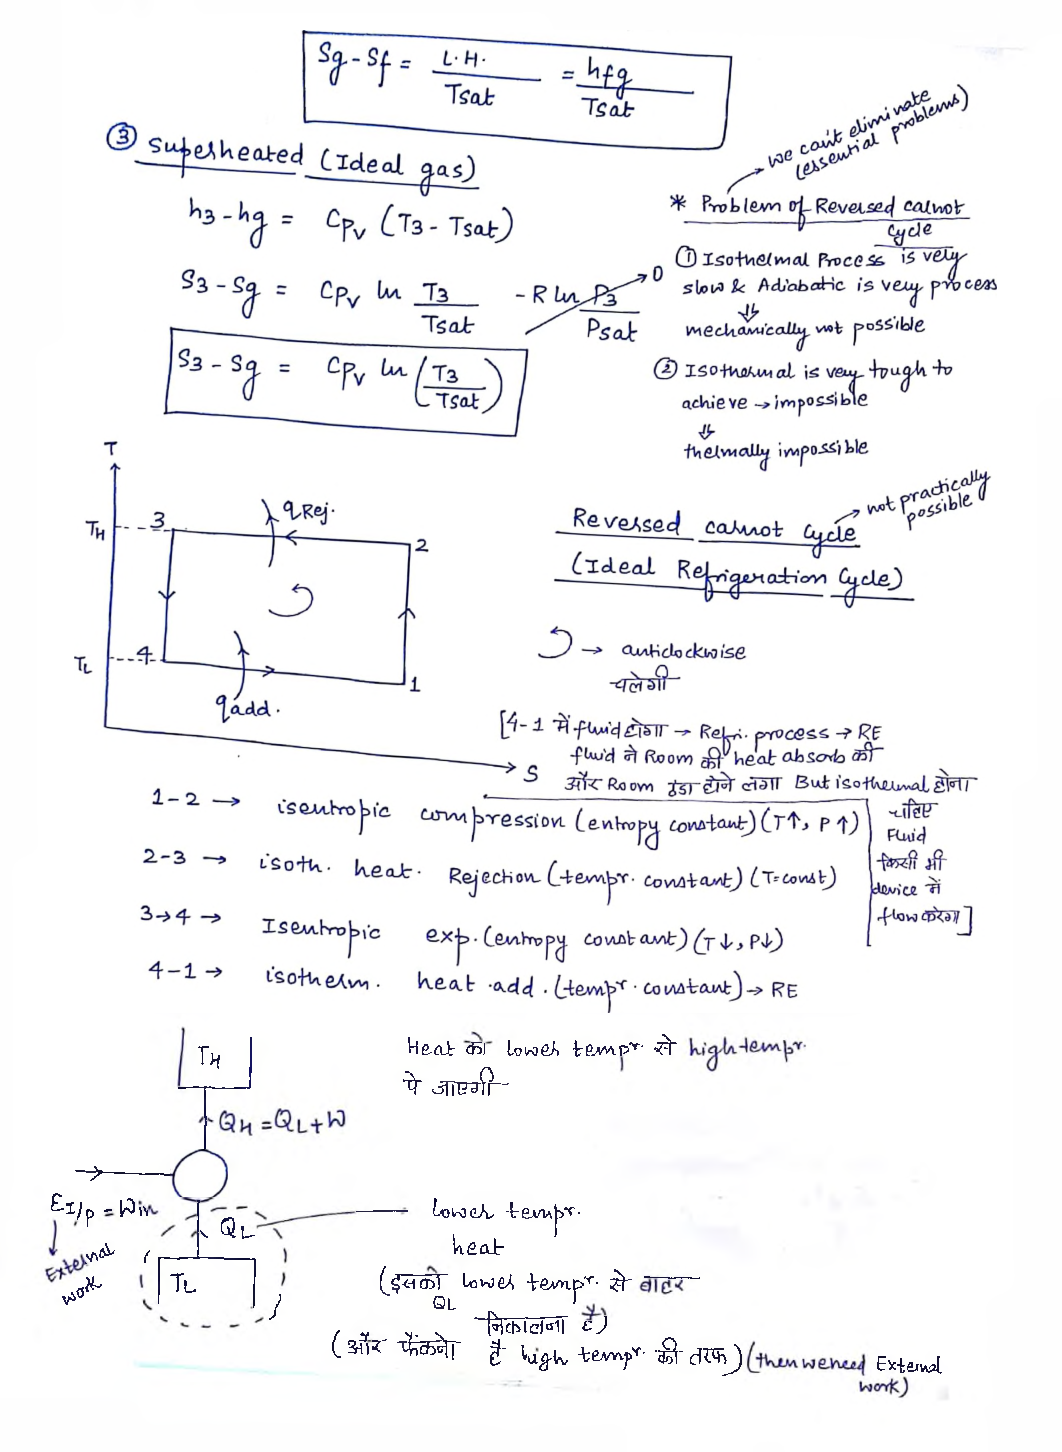 Sg - Sf = L.H. / Tsat = hfg / Tsat
③ Superheated (Ideal gas)
h3 - hg = Cpv (T3 - Tsat)
S3 - Sg = Cpv ln T3 / Tsat - R ln P3 / Psat → 0
S3 - Sg = Cpv ln (T3 / Tsat)
→ we can't eliminate
(essential problems)
* Problem of Reversed carnot
cycle
① Isothermal Process is very
slow & Adiabatic is very process
⇓
mechanically not possible
② Isothermal is very tough to
achieve → impossible
⇓
thermally impossible
T
TH
3
qRej.
2
TL
4
1
qadd.
S
→ not practically
possible
Reversed carnot cycle
(Ideal Refrigeration Cycle)
→ anticlockwise
चलेगी
[4-1 में fluid होगा → Refri. process → RE
fluid ने Room की heat absorb की
और Room ठंडा होने लगा But isothermal होना
चाहिए
Fluid
किसी भी
device में
flow करेगा]
1-2 → isentropic compression (entropy constant) (T↑, P↑)
2-3 → isoth. heat. Rejection (tempr. constant) (T=const)
3→4 → Isentropic exp. (entropy constant) (T↓, P↓)
4-1 → isotherm. heat .add. (tempr. constant) → RE
TH
Heat को lower tempr. से high tempr.
पे जाएगी
QH = QL + W
EI/p = Win
External
work
QL
lower tempr.
heat
TL
(इसको lower tempr. से बाहर
QL
निकालना है)
(और फेंकना है high tempr. की तरफ) (then we need External
work)